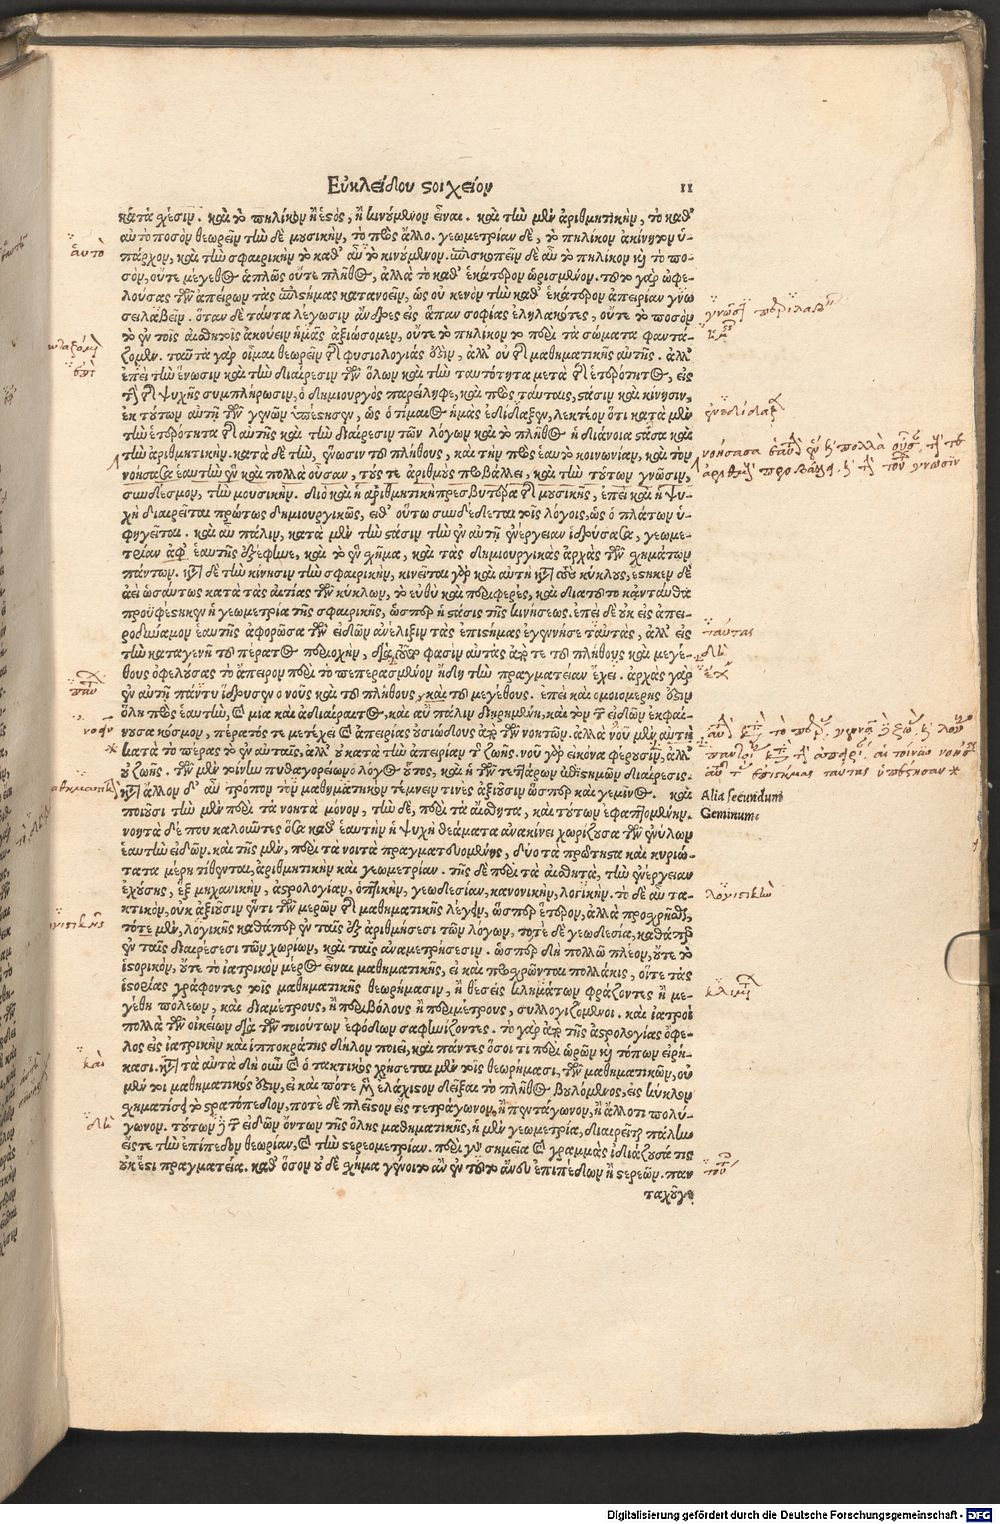 Εὐκλείδου στοιχείον 11
κατὰ χέσιν. καὶ τὸ πηλίκον ἢ ἑστὸς, ἢ κινούμενον εἶναι. καὶ τὴν μὲν ἀριθμητικὴν, τὸ καθ'
αὑτὸ ποσὸν θεωρεῖν τὴν δὲ μουσικὴν, τὸ πρὸς ἄλλο. γεωμετρίαν δὲ, τὸ πηλίκον ἀκίνητον ὑ-
πάρχον, καὶ τὴν σφαιρικὴν τὸ καθ' αὑτὸ κινούμενον. ἐπισκοπεῖν δὲ αὖ τὸ πηλίκον καὶ τὸ πο-
σὸν, οὔτε μέγεθος ἁπλῶς οὔτε πλῆθος, ἀλλὰ τὸ καθ' ἑκάτερον ὡρισμένον. τοῦτο γὰρ ἀφε-
λούσας τῶν ἀπείρων τὰς ἐπιστήμας κατανοεῖν, ὡς οὐ κενὸν τὴν καθ' ἑκάτερον ἀπειρίαν γνω
σει λαβεῖν. ὅταν δὲ ταῦτα λέγωσιν ἄνδρες εἰς ἅπαν σοφίας ἐληλακότες, οὔτε τὸ ποσὸν
τὸ ἐν τοῖς αἰσθητοῖς ἀκούειν ἡμᾶς ἀξιώσομεν, οὔτε τὸ πηλίκον τὸ περὶ τὰ σώματα φαντα-
ζομεν. ταῦτα γὰρ οἶμαι θεωρεῖν τῆς φυσιολογίας ἐστὶν, ἀλλ' οὐ τῆς μαθηματικῆς αὐτῆς. ἀλλ'
ἐπεὶ τὴν ἕνωσιν καὶ τὴν διαίρεσιν τῶν ὅλων καὶ τὴν ταυτότητα μετὰ τῆς ἑτερότητος, εἰς
τὴν τῆς ψυχῆς συμπλήρωσιν, ὁ δημιουργὸς παρείληφε, καὶ πρὸς ταύταις, στάσιν καὶ κίνησιν,
ἐκ τούτων αὐτὴν τῶν γενῶν ὑπέστησεν, ὡς ὁ τίμαιος ἡμᾶς ἐδίδαξεν, λεκτέον ὅτι κατὰ μὲν
τὴν ἑτερότητα τῆς αὐτῆς καὶ τὴν διαίρεσιν τῶν λόγων καὶ τὸ πλῆθος ἡ διάνοια στᾶσα καὶ
τὴν ἀριθμητικήν. κατὰ δὲ τὴν, ἕνωσιν τοῦ πλήθους, καὶ τὴν πρὸς ἑαυτὸ κοινωνίαν, καὶ τὸν
νοήσασα ἑαυτὴν ἓν καὶ πολλὰ οὖσαν, τούς τε ἀριθμὸς προβάλλει, καὶ τὴν τούτων γνῶσιν,
σύνδεσμον, τὴν μουσικήν. διὸ καὶ ἡ ἀριθμητικὴ πρεσβυτέρα τῆς μουσικῆς, ἐπεὶ καὶ ἡ ψυ-
χὴ διαιρεῖται πρώτως δημιουργικῶς, εἶθ' οὕτω συνδέδεται τοῖς λόγοις, ὡς ὁ πλάτων ὑ-
φηγεῖται. καὶ αὖ πάλιν, κατὰ μὲν τὴν στάσιν τὴν ἐν αὐτῇ ἐνέργειαν ἱδρύσασα, γεωμε-
τρίαν ἀφ' ἑαυτῆς ἐξέφηνε, καὶ τὸ ἓν χῆμα, καὶ τὰς δημιουργικὰς ἀρχὰς τῶν χημάτων
πάντων. κατὰ δὲ τὴν κίνησιν τὴν σφαιρικὴν, κινεῖται γὰρ καὶ αὐτὴ κατὰ τοὺς κύκλους, ἕστηκεν δὲ
ἀεὶ ὡσαύτως κατὰ τὰς αἰτίας τῶν κύκλων, τὸ εὐθὺ καὶ περιφερὲς, καὶ διατοῦτο κἀνταῦθα
προϋφέστηκεν ἡ γεωμετρία τῆς σφαιρικῆς, ὥσπερ ἡ στάσις τῆς κινήσεως. ἐπεὶ δὲ οὐκ εἰς ἀπει-
ροδύναμον ἑαυτῆς ἀφορῶσα τῶν εἰδῶν ἀνέλιξιν τὰς ἐπιστήμας ἐγέννησε ταὐτὰς, ἀλλ' εἰς
τὴν καταγενῆ τοῦ πέρατος περιοχὴν, διὰ τοῦτο φασὶν αὐτὰς ἀπό τε τοῦ πλήθους καὶ μεγέ-
θους ἀφελούσας τὸ ἄπειρον περὶ τὸ πεπερασμένον ἤδη τὴν πραγματείαν ἔχει. ἀρχὰς γὰρ
ἐν αὐτῇ πάντῃ ἱδρύσεν ὁ νοῦς καὶ τοῦ πλήθους, καὶ τοῦ μεγέθους. ἐπεὶ καὶ ὁμοιομερής ἐστιν
ὅλη πρὸς ἑαυτὴν, καὶ μία καὶ ἀδιαίρετος, καὶ αὖ πάλιν διῃρημένη, καὶ τὸν τῶν εἰδῶν ἐκφαί-
νουσα κόσμον, πέρατός τε μετέχει καὶ ἀπειρίας οὐσιώδους ἀπὸ τῶν νοητῶν. ἀλλὰ νοῦ μὲν αὐτὴ
κατὰ τὸ πέρας τὸ ἐν αὐταῖς, ἀλλ' οὐ κατὰ τὴν ἀπειρίαν τῆς ζωῆς. νοῦ γὰρ εἰκόνα φέρουσιν, ἀλλ'
οὐ ζωῆς. τῶν μὲν τοίνυν πυθαγορείων ὁ λόγος οὗτος, καὶ ἡ τῶν τεττάρων ἐπιστημῶν διαίρεσις.
κατὰ ἄλλον δ' αὖ τρόπον τὴν μαθηματικὴν τέμνειν τινὲς ἀξιοῦσιν ὥσπερ καὶ γεμῖνος. καὶ
ποιοῦσι τὴν μὲν περὶ τὰ νοητὰ μόνον, τὴν δὲ, περὶ τὰ αἰσθητὰ, καὶ τούτων ἐφαπτομένην.
νοητὰ δέ που καλοῦντες ὅσα καθ' ἑαυτὴν ἡ ψυχὴ θεάματα ἀνακίνει χωρίζουσα τῶν ἐνύλων
ἑαυτὴν εἰδῶν. καὶ τῆς μὲν, περὶ τὰ νοιτὰ πραγματευομένης, δύο τὰ πρώτιστα καὶ κυριώ-
τατα μέρη τίθενται, ἀριθμητικὴν καὶ γεωμετρίαν. τῆς δὲ περὶ τὰ αἰσθητὰ, τὴν ἐνέργειαν
ἐχούσης, ἓξ μηχανικὴν, ἀστρολογίαν, ὀπτικὴν, γεωδεσίαν, κανονικὴν, λογικήν. τὸ δὲ αὖ τα-
κτικὸν, οὐκ ἀξιοῦσιν ἕντι τῶν μερῶν τῆς μαθηματικῆς λέγειν, ὥσπερ ἕτερον, ἀλλὰ προχρῆσθαι,
τότε μὲν, λογικῆς καθάπερ ἐν ταῖς ἐξ ἀριθμήσεσι τῶν λόγων, τοτὲ δὲ γεωδεσία, καθάπερ
ἐν ταῖς διαιρέσεσι τῶν χωρίων, καὶ ταῖς ἀναμετρήσεσιν. ὥσπερ δὴ πολλῷ πλέον, οὔτε τὸ
ἱστορικὸν, οὔτε τὸ ἰατρικὸν μέρος εἶναι μαθηματικῆς, εἰ καὶ προχρῶνται πολλάκις, οἵτε τὰς
ἱστορίας γράφοντες τοῖς μαθηματικῆς θεωρήμασιν, ἢ θέσεις κλημάτων φράζοντες ἢ με-
γέθη πόλεων, καὶ διαμέτρους, ἢ περιβόλους ἢ περιμέτρους, συλλογιζόμενοι. καὶ ἰατροὶ
πολλὰ τῶν οἰκείων διὰ τῶν τοιούτων ἐφόδων σαφηνίζοντες. τὸ γὰρ ἀπὸ τῆς ἀστρολογίας ὄφε-
λος εἰς ἰατρικὴν καὶ ἱπποκράτης δῆλον ποιεῖ, καὶ πάντες ὅσοι τι περὶ ὡρῶν καὶ τόπων εἰρή-
κασι. κατὰ τὰ αὐτὰ δὴ οὖν καὶ ὁ τακτικὸς χρήσεται μὲν τοῖς θεωρήμασι, τῶν μαθηματικῶν, οὐ
μὲν τοι μαθηματικός ἐστιν, εἰ καὶ πότε μὲν ἐλάχιστον δεῖξαι τὸ πλῆθος βουλόμενος, εἰς κύκλον
χηματίσῃ τὸ στρατόπεδον, ποτὲ δὲ πλεῖστον εἰς τετράγωνον, ἢ πεντάγωνον, ἢ ἄλλο τι πολύ-
γωνον. τούτων δὲ τῶν εἰδῶν ὄντων τῆς ὅλης μαθηματικῆς, ἡ μὲν γεωμετρία, διαιρεῖται πάλιν
εἴς τε τὴν ἐπίπεδον θεωρίαν, καὶ τὴν στερεομετρίαν. περὶ γὰρ σημεῖα καὶ γραμμὰς ἰδιάζουσά τις
οὐκ ἔστι πραγματεία. καθ' ὅσον οὐδὲ χῆμα γένοιτο ἂν ἐν τούτοις ἄνευ ἐπιπέδων ἢ στερεῶν. παν
ταχοῦ γὰρ
Alia secundum
Geminum:
αὑτὸ
ἐνεδίδαξ
ταύτας
λογιστικὴν
καὶ
Digitalisierung gefördert durch die Deutsche Forschungsgemeinschaft - DFG